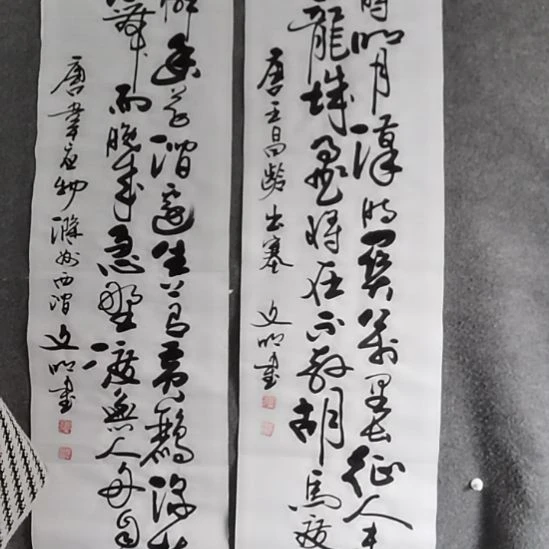 时明月漢时關萬里長征人未
龍城飛將在不教胡馬度
唐王昌齡出塞 文明書
憐幽草澗邊生上有黃鸝深樹
帶雨晚來急野渡無人舟自
唐韋應物滁州西澗 文明書